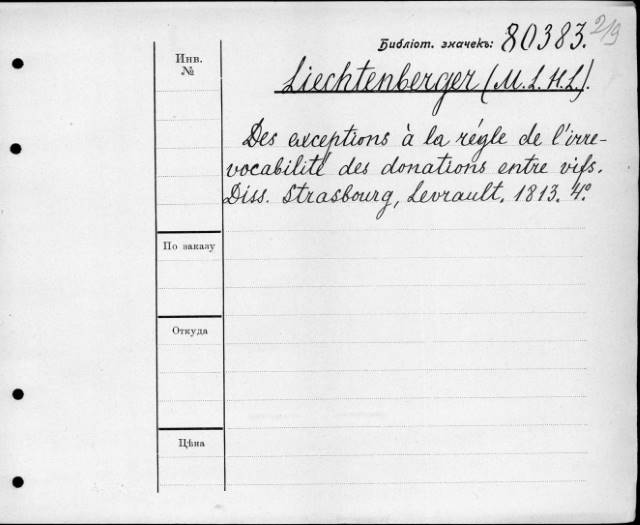 Библіот. значекъ: 80383. 2/9
Инв.
№
Liechtenberger (M. L. H. L.).
Des exceptions à la régle de l'irre-
vocabilité des donations entre vifs.
Diss. Strasbourg, Levrault. 1813. 4°.
По заказу
Откуда
Цѣна